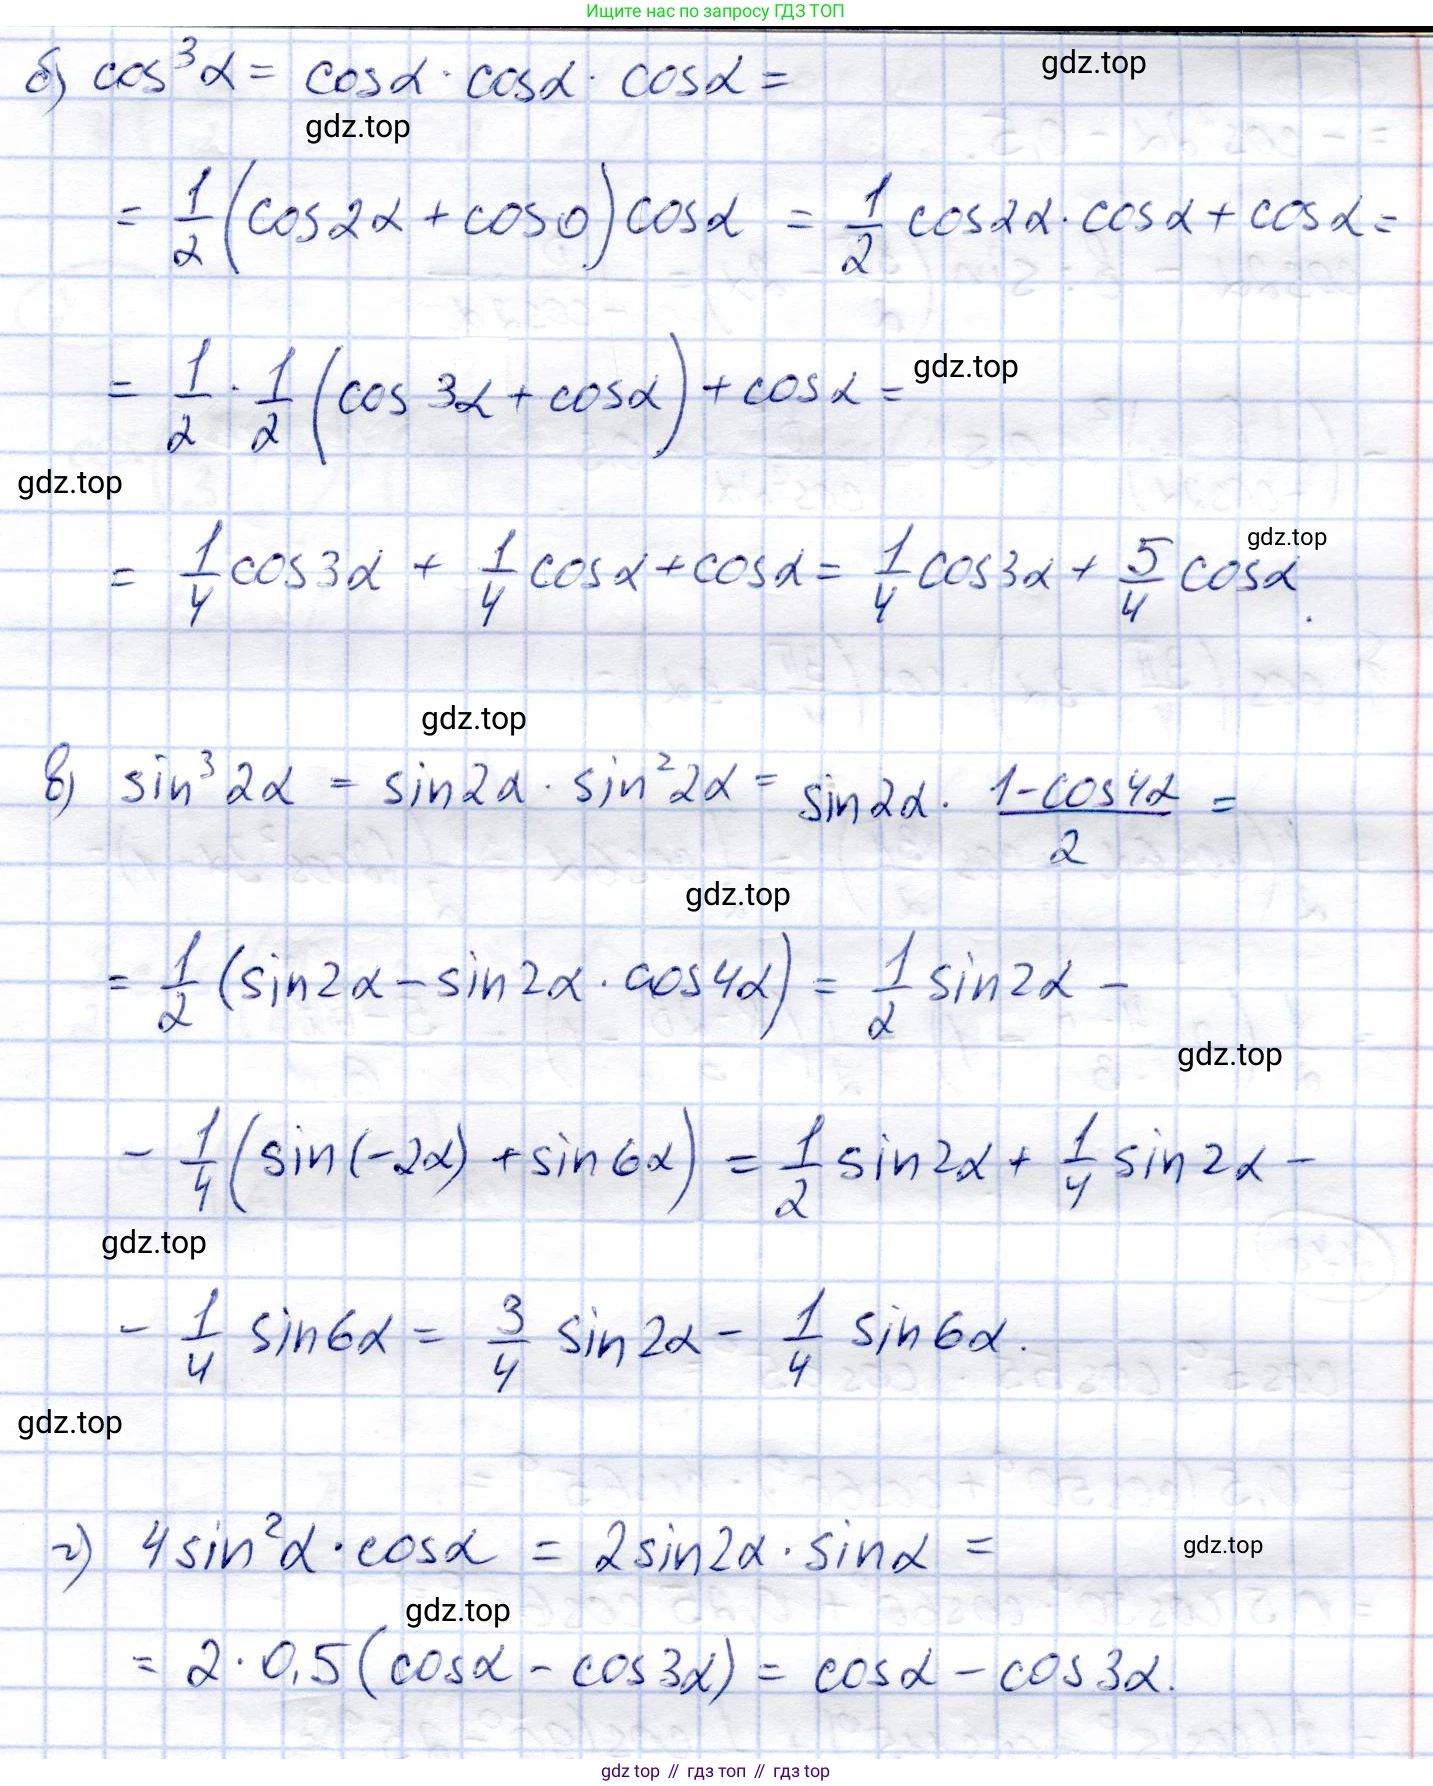 Ищите нас по запросу ГДЗ ТОП
б) cos³α = cosα · cosα · cosα =
gdz.top
gdz.top
= 1/2 (cos2α + cos0) cosα = 1/2 cos2α · cosα + cosα =
= 1/2 · 1/2 (cos3α + cosα) + cosα =
gdz.top
gdz.top
= 1/4 cos3α + 1/4 cosα + cosα = 1/4 cos3α + 5/4 cosα.
gdz.top
gdz.top
в) sin³2α = sin2α · sin²2α = sin2α · (1-cos4α)/2 =
gdz.top
= 1/2 (sin2α - sin2α · cos4α) = 1/2 sin2α -
gdz.top
- 1/4 (sin(-2α) + sin6α) = 1/2 sin2α + 1/4 sin2α -
gdz.top
- 1/4 sin6α = 3/4 sin2α - 1/4 sin6α.
gdz.top
г) 4sin²α · cosα = 2sin2α · sinα =
gdz.top
gdz.top
= 2 · 0,5 (cosα - cos3α) = cosα - cos3α.
gdz top // гдз топ // гдз top